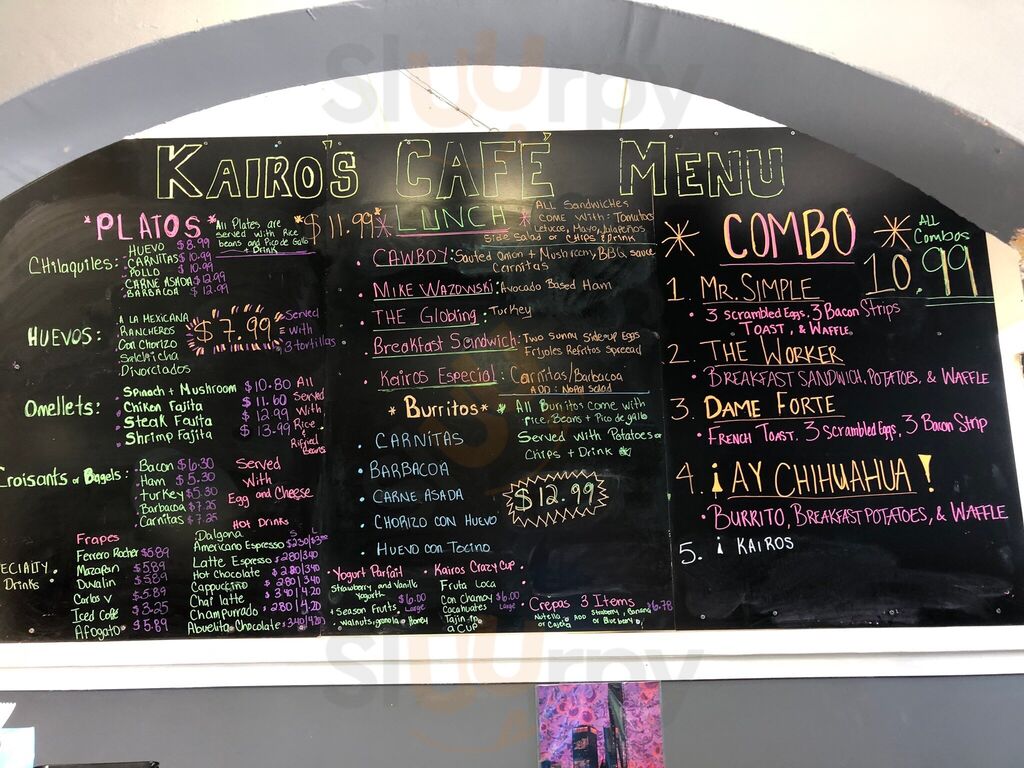 Sluurpy
KAIRO'S CAFÉ MENU
*PLATOS*
All Plates are
served with Rice
beans and Pico de Gallo
+ Drink
Chilaquiles:
HUEVO $8.99
CARNITAS $10.99
POLLO $10.99
CARNE ASADA $12.99
BARBACOA $12.99
HUEVOS:
A LA MEXICANA
RANCHEROS
Con Chorizo
Salchicha
Divorciados
$7.99
Served
with
3 tortillas
Omellets:
Spinach + Mushroom $10.80
Chiken Fajita $11.60
Steak Fajita $12.99
Shrimp Fajita $13.99
All
Served
With
Rice +
Rifried
Beans
Croisants or Bagels:
Bacon $6.30
Ham $5.30
Turkey $5.30
Barbacoa $7.25
Carnitas $7.25
Served
With
Egg and Cheese
ECIALTY
Drinks
Frapes
Ferrero Rocher $5.89
Mazapan $5.89
Duvalin $5.89
Carlos V $5.89
Iced Café $3.25
Afogato $5.89
Hot Drinks
Dalgona
Americano Espresso
Latte Espresso 2.80|3.40
Hot Chocolate 2.80|3.40
Cappuccino $2.80|3.40
Chai latte $3.40|4.20
Champurrado 2.80|4.20
Abuelita Chocolate 3.40|4.20
*$11.99* LUNCH *
ALL Sandwiches
COME WITH: Tomatoes
Letuce, Mayo, Jalapeños
Side Salad or Chips + Drink
CAWBOY: Sauted Onion + Mushroom, BBQ sauce
Carnitas
MIKE WAZOWSKI: Avocado Based Ham
THE Globling: Turkey
Breakfast Sandwich: Two Sunny Side-up Eggs
Frijoles Refritos Spreead
Kairos Especial: Carnitas/Barbacoa
ADD: Nopal Salad
* Burritos *
All Burritos come with
Rice, Beans + Pico de gallo
Served with Potatoes or
Chips + Drink
CARNITAS
BARBACOA
CARNE ASADA
CHORIZO CON HUEVO
HUEVO CON TOCINO
$12.99
Yogurt Parfait
Strawberry and Vanilla
Yogurth
+ Season Fruits $6.00
Large
Walnuts, granola + Honey
Kairos Crazy Cup
Fruta Loca
Con Chamoy $6.00
Cacahuates Large
Tajin
a Cup
Crepas 3 Items
$6.78
COMBO
ALL
Combos
10.99
1. MR. SIMPLE
3 Scrambled Eggs, 3 Bacon Strips
TOAST, & WAFFLE
2. THE WORKER
BREAKFAST SANDWICH, POTATOES, & WAFFLE
3. DAME FORTE
FRENCH TOAST, 3 Scrambled Eggs, 3 Bacon Strip
4. ¡AY CHIHUAHUA!
BURRITO, BREAKFAST POTATOES, & WAFFLE
5. ¡ KAIROS
Sluurpy